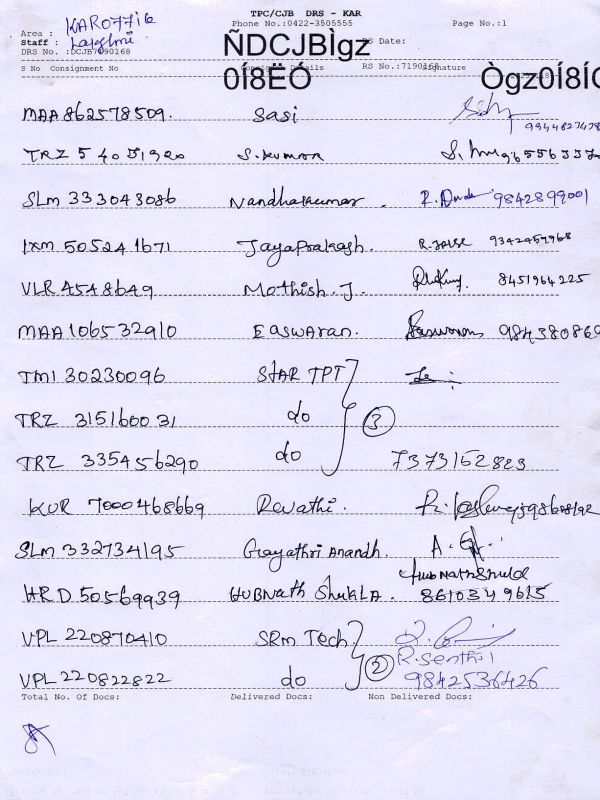 TPC/CJB DRS - KAR
Phone No.:0422-3505555 Page No.:1
Area : KAR07716
Staff : Lakshmi ÑDCJBÌgz RS Date:
DRS No.:DCJB7190168
S No Consignment No Details RS No.:7190168 Signature
0Í8ËÓ Ògz0Í8ÍÓ
MAA 862578509. Sasi 9944827438
TRZ 54051920 S.Kumar
SLM 333043086 Nandhakumar. 9842899001
IXM 505241671 Jayaprakash. 9342459968
VLR 4548649 Mothish.J. 8451964225
MAA 106532910 Easwaran. Easwaran 984380869
TMI 30230096 STAR TPT
TRZ 315160031 do 3
TRZ 335456290 do 7373152823
KUR 7000468669 Revathi.
SLM 332734195 Gayathri Anandh.
HRD 50569939 HUBNath SHUKLA. 8610349615
VPL 220870410 SRM Tech
R.Senthil
VPL 220822822 do 2 9842536426
Total No. Of Docs: Delivered Docs: Non Delivered Docs: